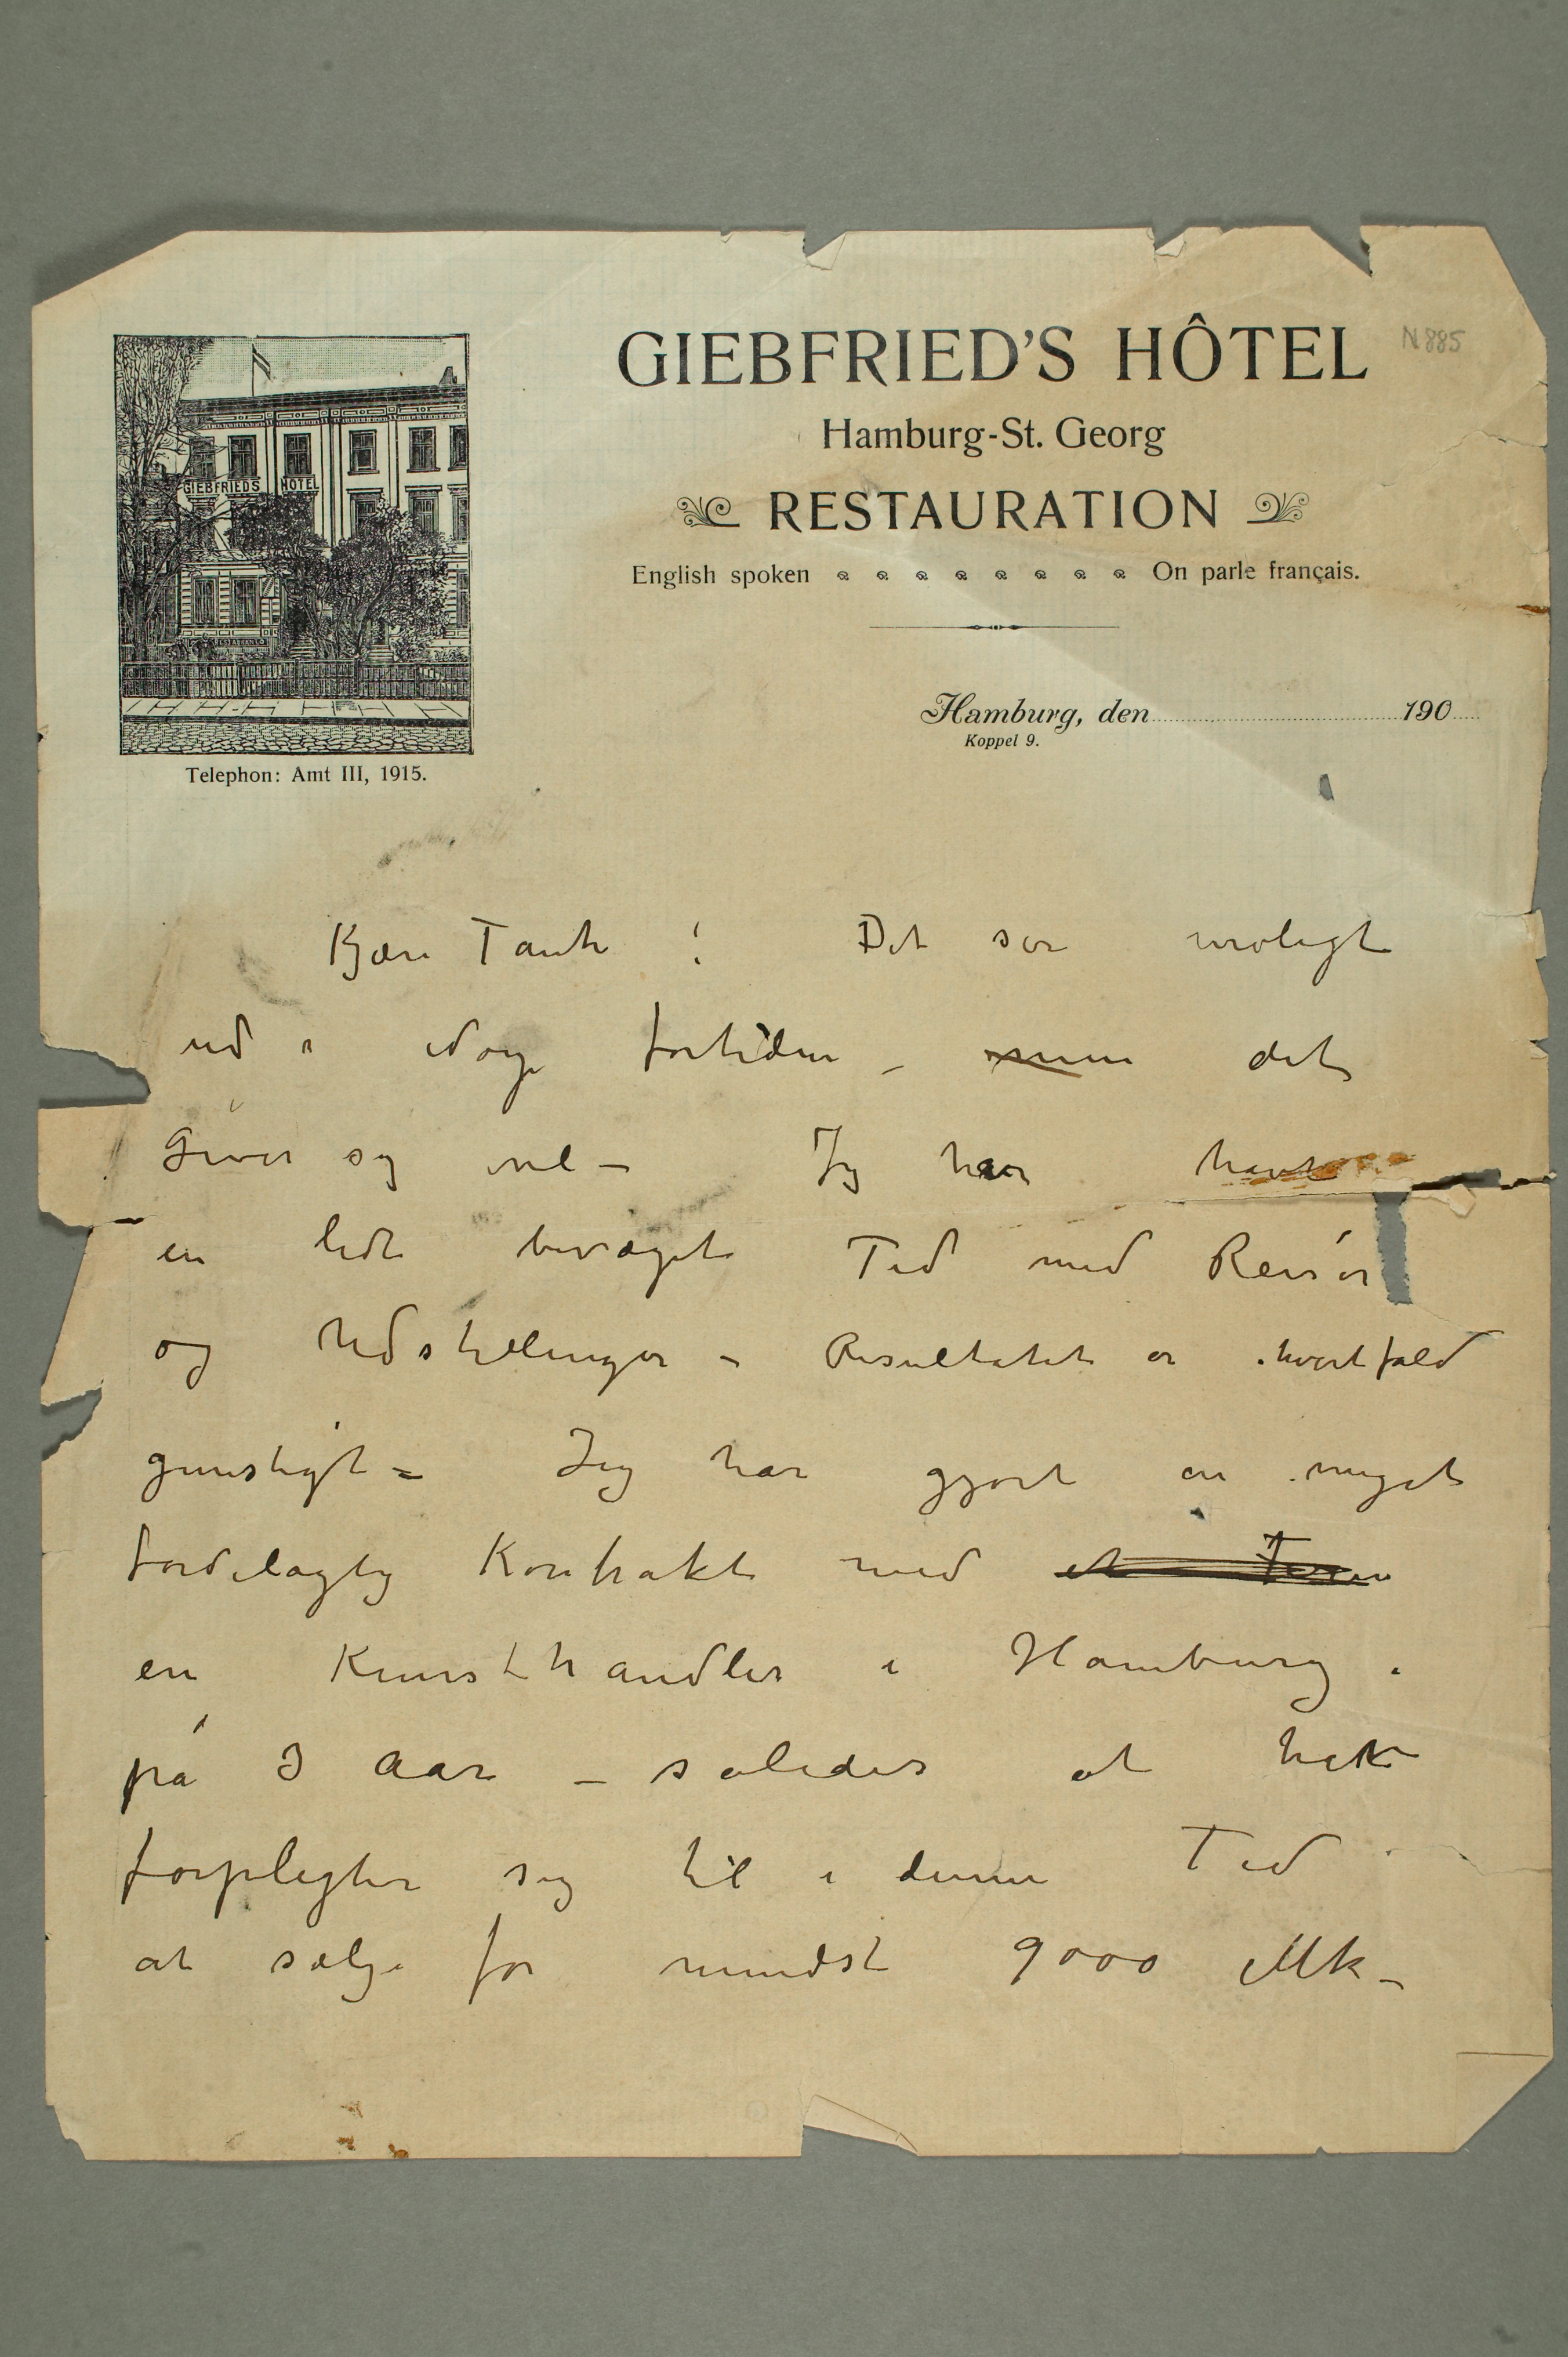 N 885
GIEBFRIED'S HÔTEL
Hamburg-St. Georg
RESTAURATION
English spoken On parle français.
GIEBFRIEDS HOTEL
Hamburg, den 190
Koppel 9.
Telephon: Amt III, 1915.
Kjære Tante! Det ser uroligt
ud i Norge fortiden – men det
Giver sig vel – Jeg har havt
en lidt bevæget Tid med Reiser
og Udstillinger – Resultatet er ihvertfald
gunstigt – Jeg har gjort en meget
fordelagtig Kontrakt med et
en Kunsthandler i Hamburg.
på 3 Aar – således at han
forpligter sig til i denne Tid
at sælge for mindst 9000 Mk –